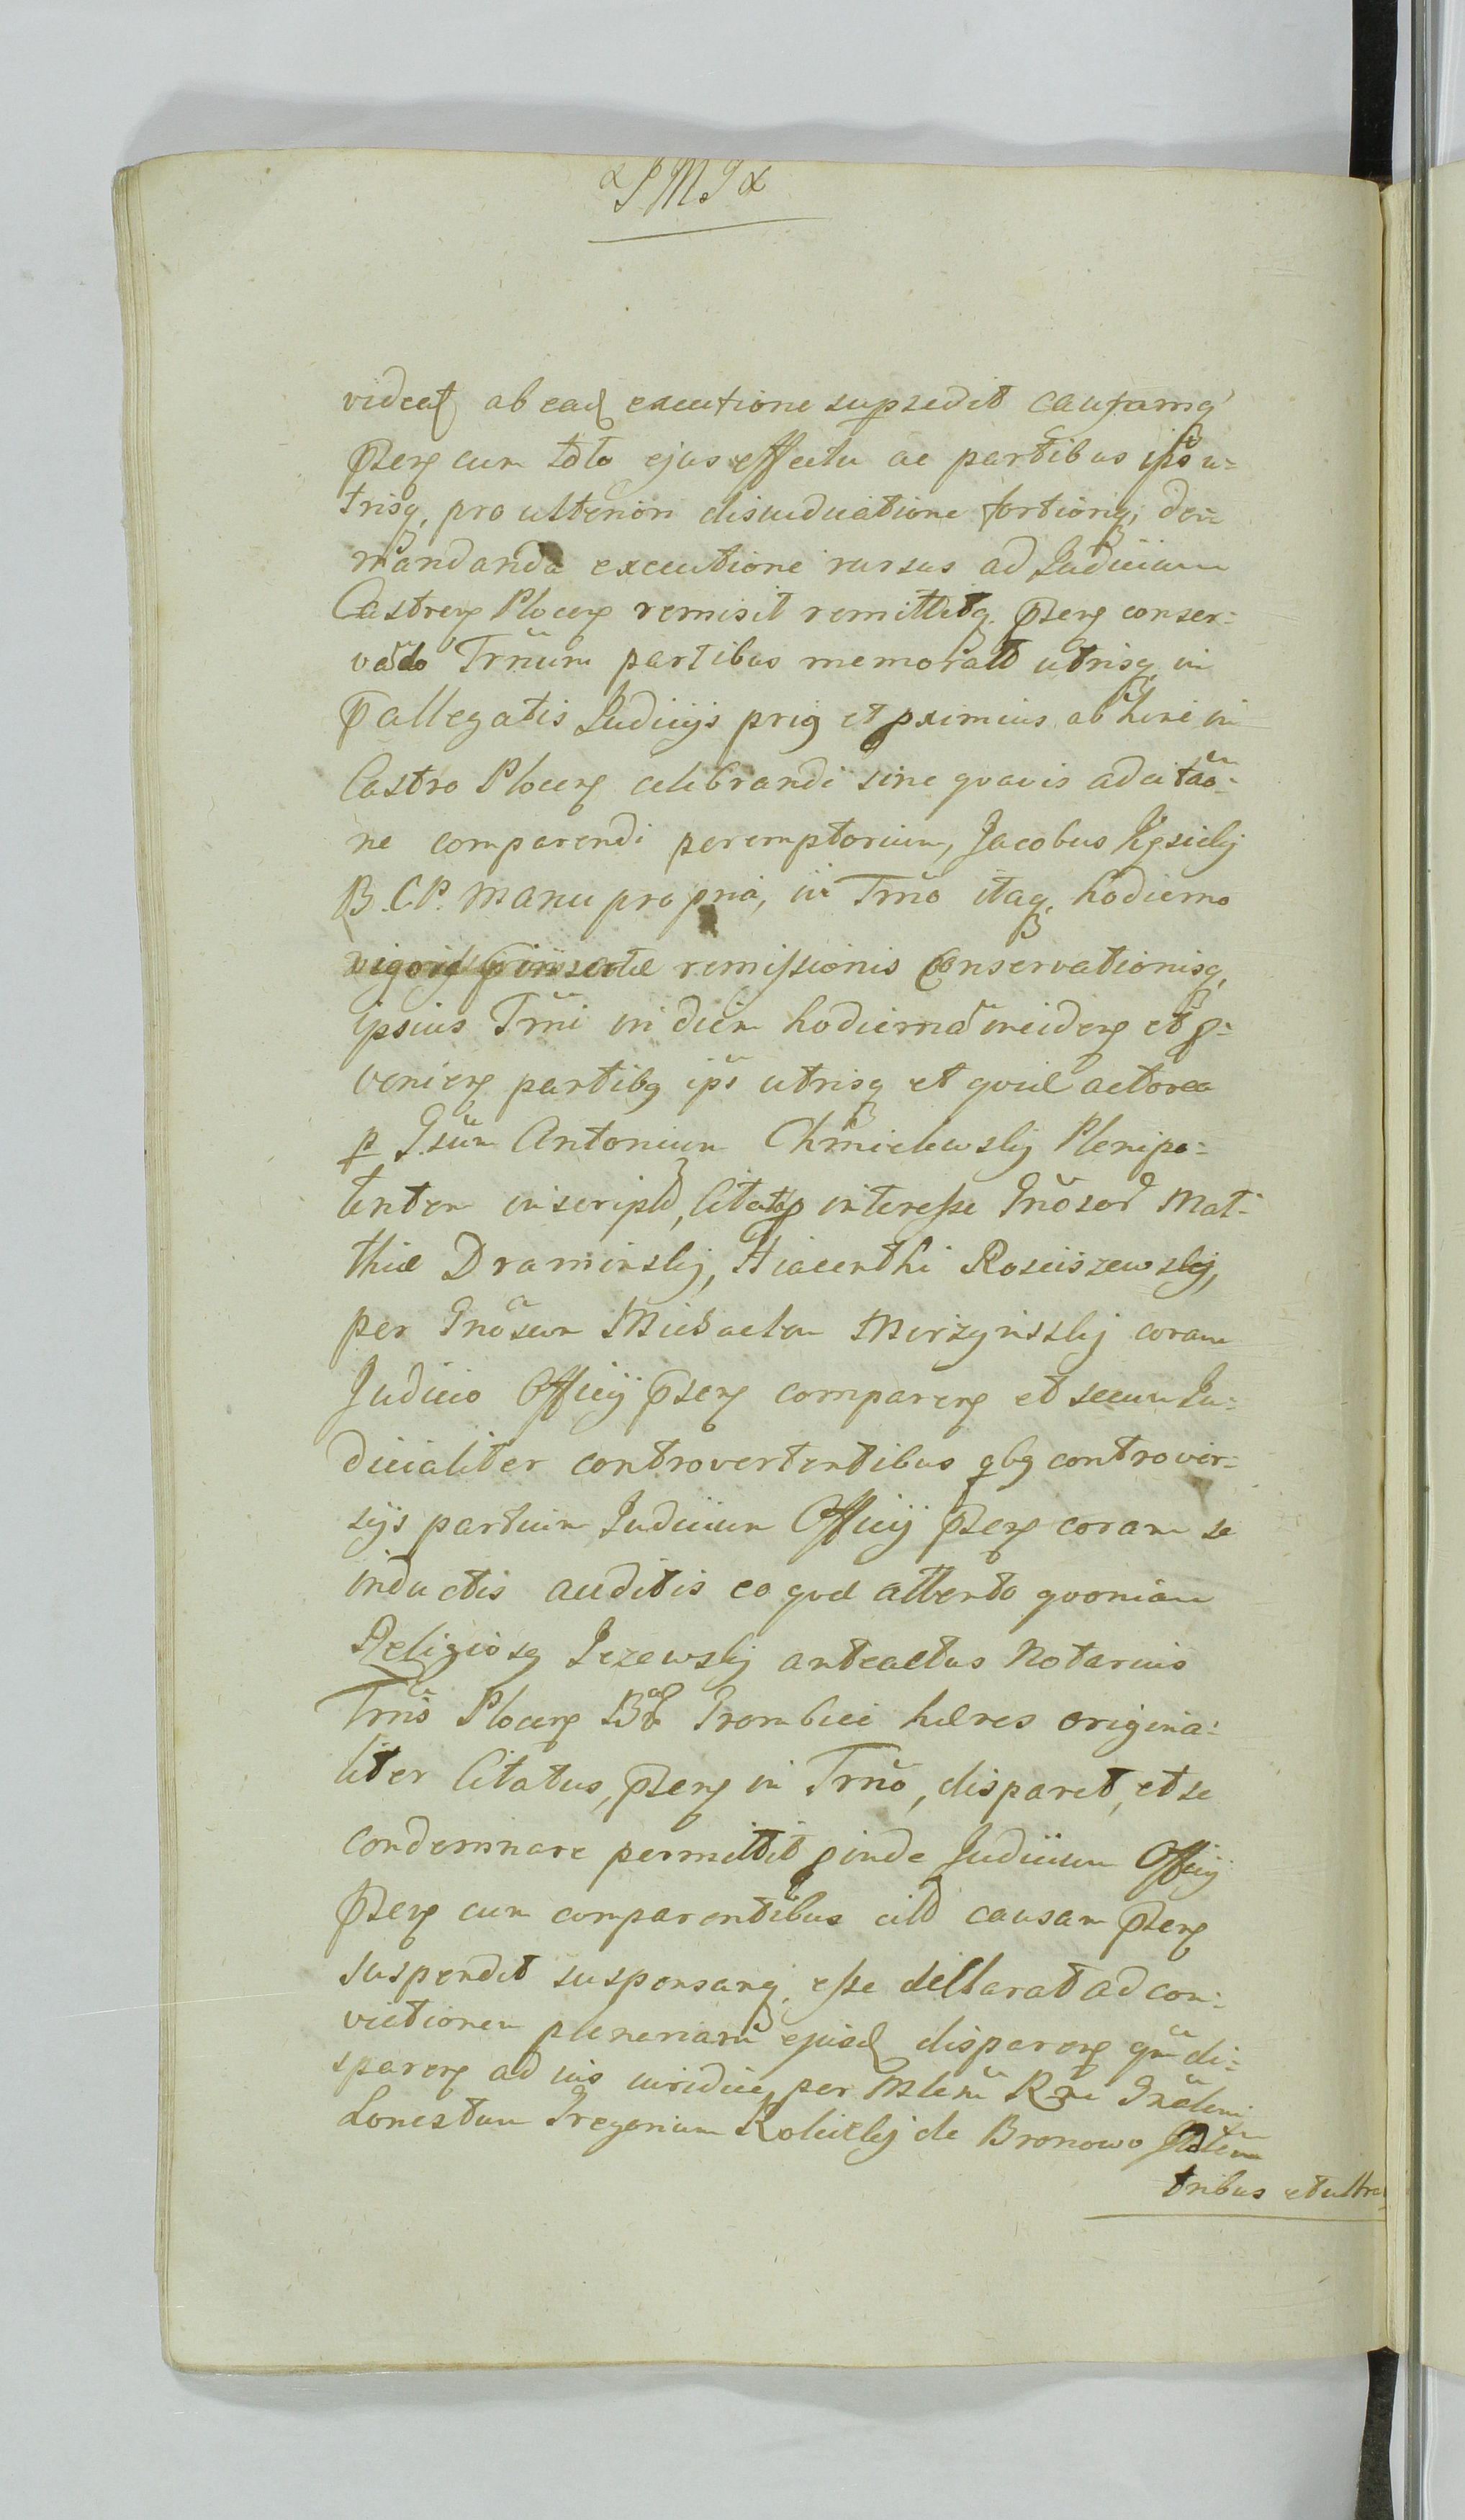 J M J
videat ab ead executione supsedit causamq
Pntem cum toto ejus effectu ac partibus ips u=
trisq, pro ulteriori disiudicatione fortioriq; de=
mandanda executione rursus ad Judicium
Castren Plocen remisit remittitq. Pnten conser=
vado Trnum partibus memorat utrisq in
pallegatis Judicijs prio et pximius ab hinc in
Castro Plocen celebrandi sine quavis adcitao=
ne comparendi peremptorium, Jacobus
B. C. P. manu propria, in Trno itaq, hodierno
vigore pinsertae remissionis Conservationisq,
ipsius Trni in diem hodierna inciden et p=
venien partibq ips utrisq et quid actorea
p Gsum Antonium Chmielewskij Plenipo=
tentem inscript, Citatq interesse Gnosor Mat=
thiae Draminskij, Hiacenthi Rosciszewskij,
per Gnosum Michaelem Mirzynskij coram
Judicio Officij Pnten comparen et secum Ju=
dicialiter controvertentibus qbq controver=
sijs partium Judicium Officij Pnten coram se
inductis auditis eo quod attento quoniam
Religiosq Jezewskij anteactus Notarius
Trris Plocen Bo Trombici haeres origina=
liter Citatus, Pnten in Trno, disparet, et se
condemnare permittit pinde Judicium Officij
Pnten cum comparentibus cit causam Pnten
suspendit suspensamq. esse declarat ad con=
victionem plenariam ejusd disparen qm di=
sparen ad ius iuridice per Mlem Rgni Gnalem
honestum Gregorium de Bronowo
tribus et ultra